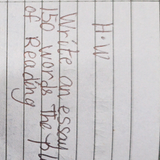 H.W
Write an essay
150 words the pl
of Reading